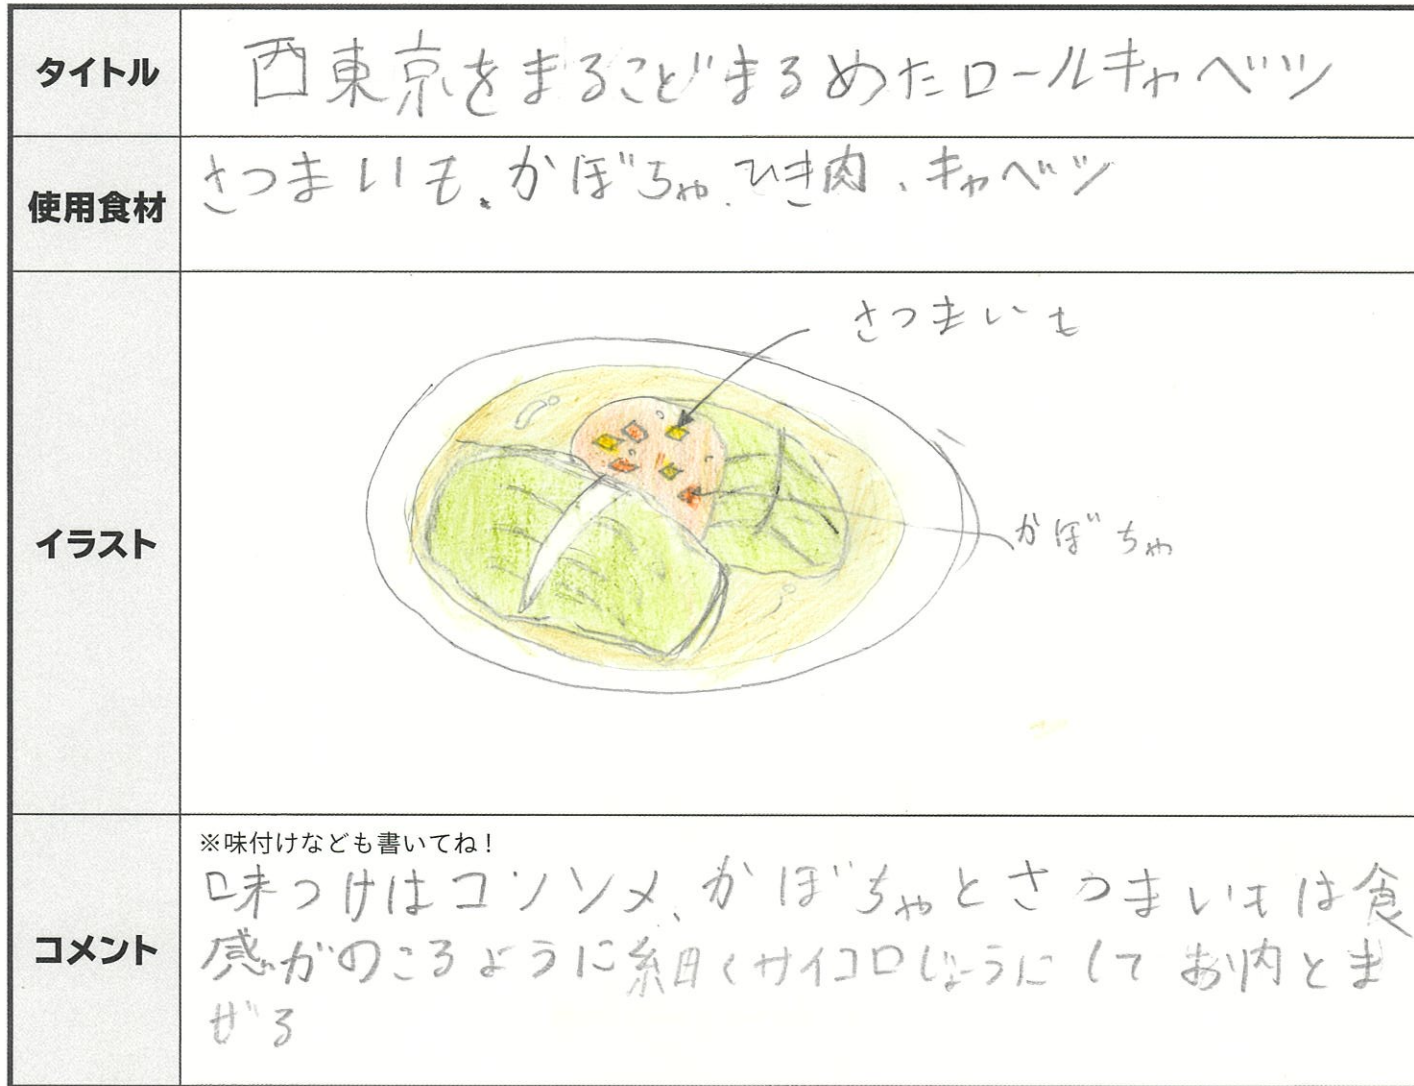 タイトル
西東京をまるごとまるめたロールキャベツ
使用食材
さつまいも、かぼちゃ、ひき肉、キャベツ
イラスト
さつまいも
かぼちゃ
コメント
※味付けなども書いてね!
味つけはコンソメ、かぼちゃとさつまいもは食
感がのこるように細くサイコロじょうにしてお肉とま
ぜる